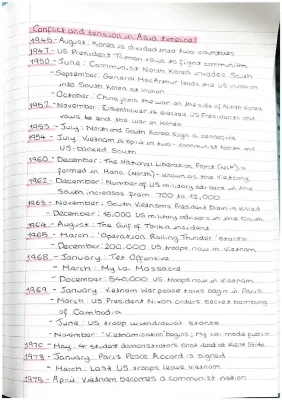 Conflict and tension in Asia timeline:
1945 - August: Korea is divided into two countries
1947 - US President Truman vows to fight communism
1950 - June: Communist North Korea invades South
- September: General MacArthur leads the US invasion
into South Korea at Inchon
- October: China joins the war on the side of North Korea
1952 - November: Eisenhower is elected US President and
vows to end the war in Korea
1953 - July: North and South Korea sign a ceasefire
1954 - July: Vietnam is split in two - communist North and
US-backed South
1960 - December: The National Liberation Front (NLF) is
formed in Hanoi (North) - known as the Vietcong
1962 - December: Number of US military advisors in the
South increases from 700 to 12,000
1963 - November: South Vietnams President Diem is killed
- December: 16,000 US military advisors in the South
1964 - August: The Gulf of Tonkin incident
1965 - March: 'Operation Rolling Thunder' starts
- December: 200,000 US troops now in Vietnam
1968 - January: Tet Offensive
- March: My Lai Massacre
- December: 540,000 US troops now in Vietnam
1969 - January: Vietnam War peace talks begin in Paris
- March: US President Nixon orders secret bombing
of Cambodia
- June: US troop withdrawal starts
- November: 'Vietnamisation' begins; My Lai made public
1970 - May: 4 student demonstrators shot dead at Kent State
1973 - January: Paris Peace Accord is signed
- March: Last US troops leave Vietnam
1975 - April: Vietnam becomes a communist nation